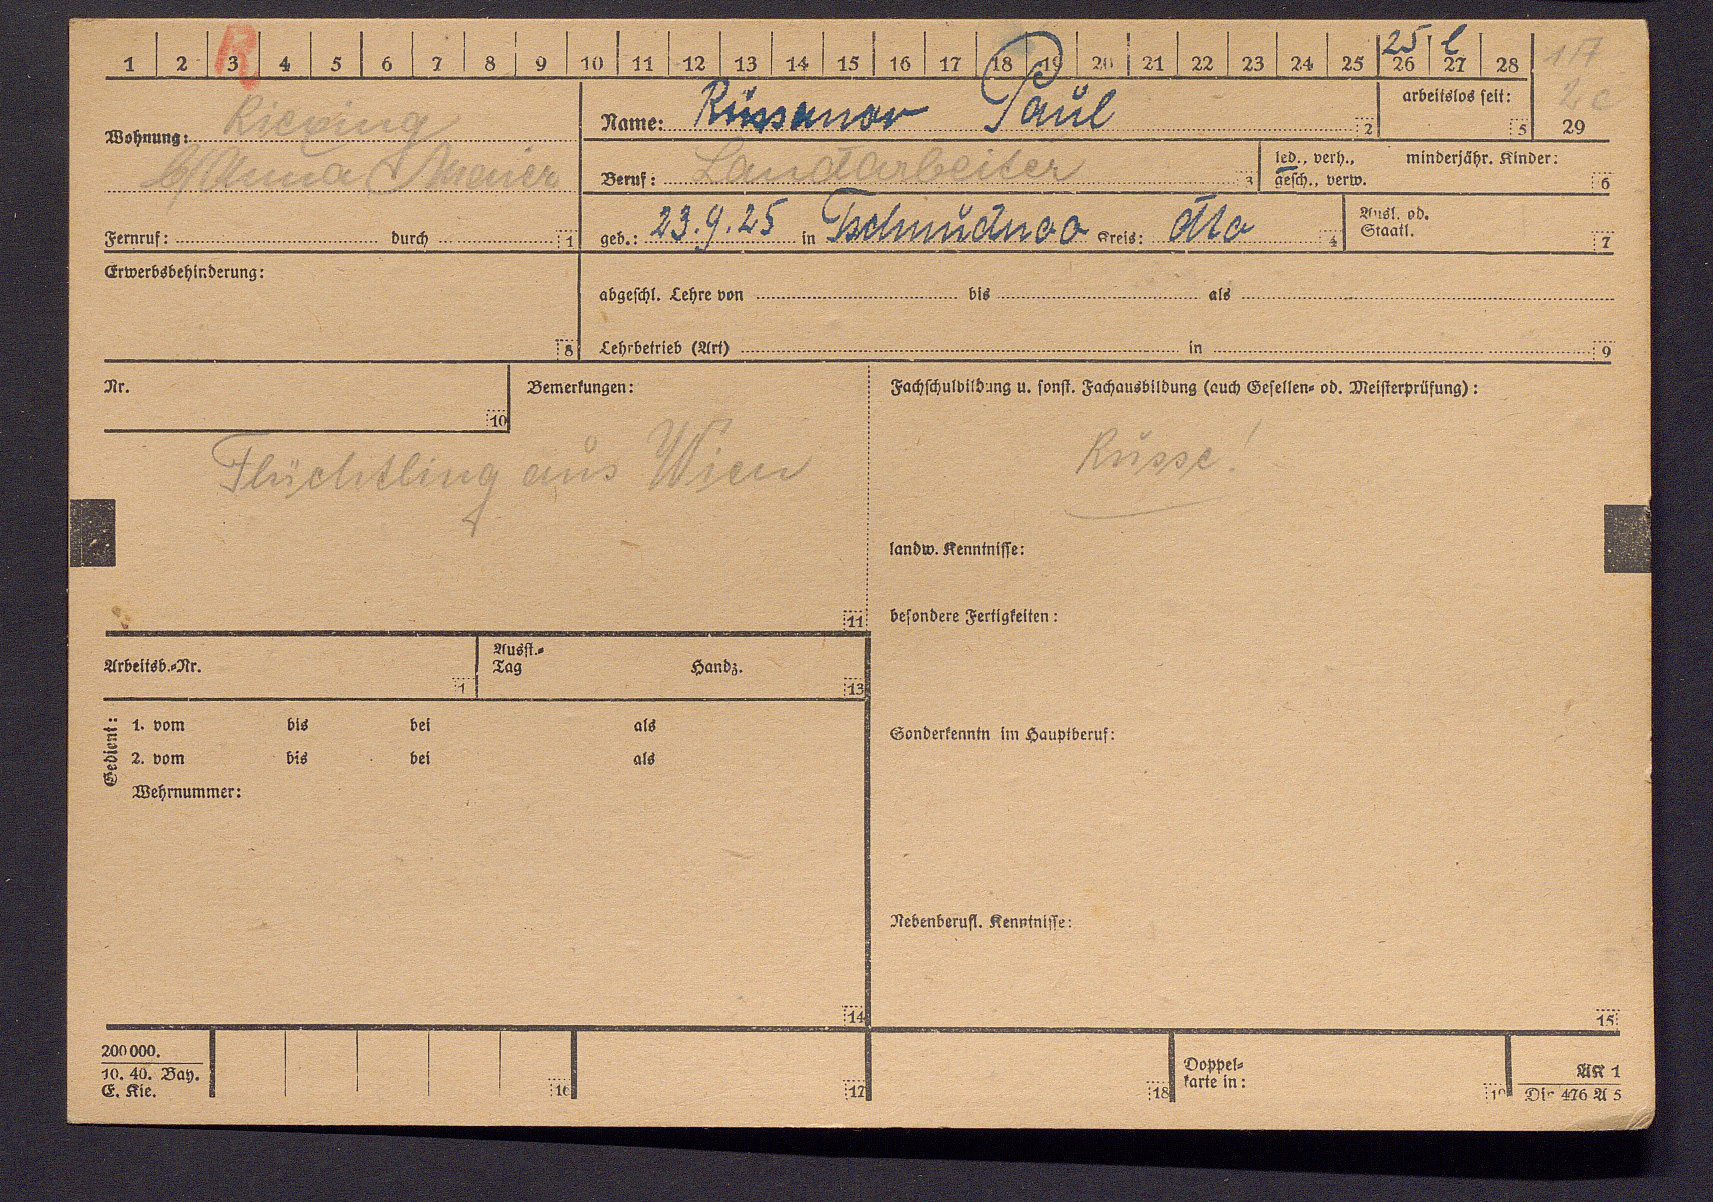 1 2 3 4 5 6 7 8 9 10 11 12 13 14 15 16 17 18 19 20 21 22 23 24 25 26 27 28
R
25 l
29
Wohnung:
b/ Anna Maier
Fernruf: durch 1
Name: Russanov Paul 2
arbeitslos seit: 5
Beruf: Landarbeiter 3
led., verh., minderjähr. Kinder:
gesch., verw. 6
geb.: 23.9.25 in Kreis: dto 4
Ausl. od.
Staatl. 7
Erwerbsbehinderung:
8
abgeschl. Lehre von bis als
Lehrbetrieb (Art) in 9
Nr.
10
Bemerkungen:
Flüchtling aus Wien
11
Fachschulbildung u. sonst. Fachausbildung (auch Gesellen- od. Meisterprüfung):
Russe!
landw. Kenntnisse:
besondere Fertigkeiten:
Sonderkenntn im Hauptberuf:
Nebenberufl. Kenntnisse:
15
Arbeitsb.-Nr.
1
Ausst.-
Tag Handz.
13
Gedient:
1. vom bis bei als
2. vom bis bei als
Wehrnummer:
14
200000.
10. 40. Bay.
E. Kie.
16
17
18
Doppel-
karte in:
19
AK 1
Din 476 A 5